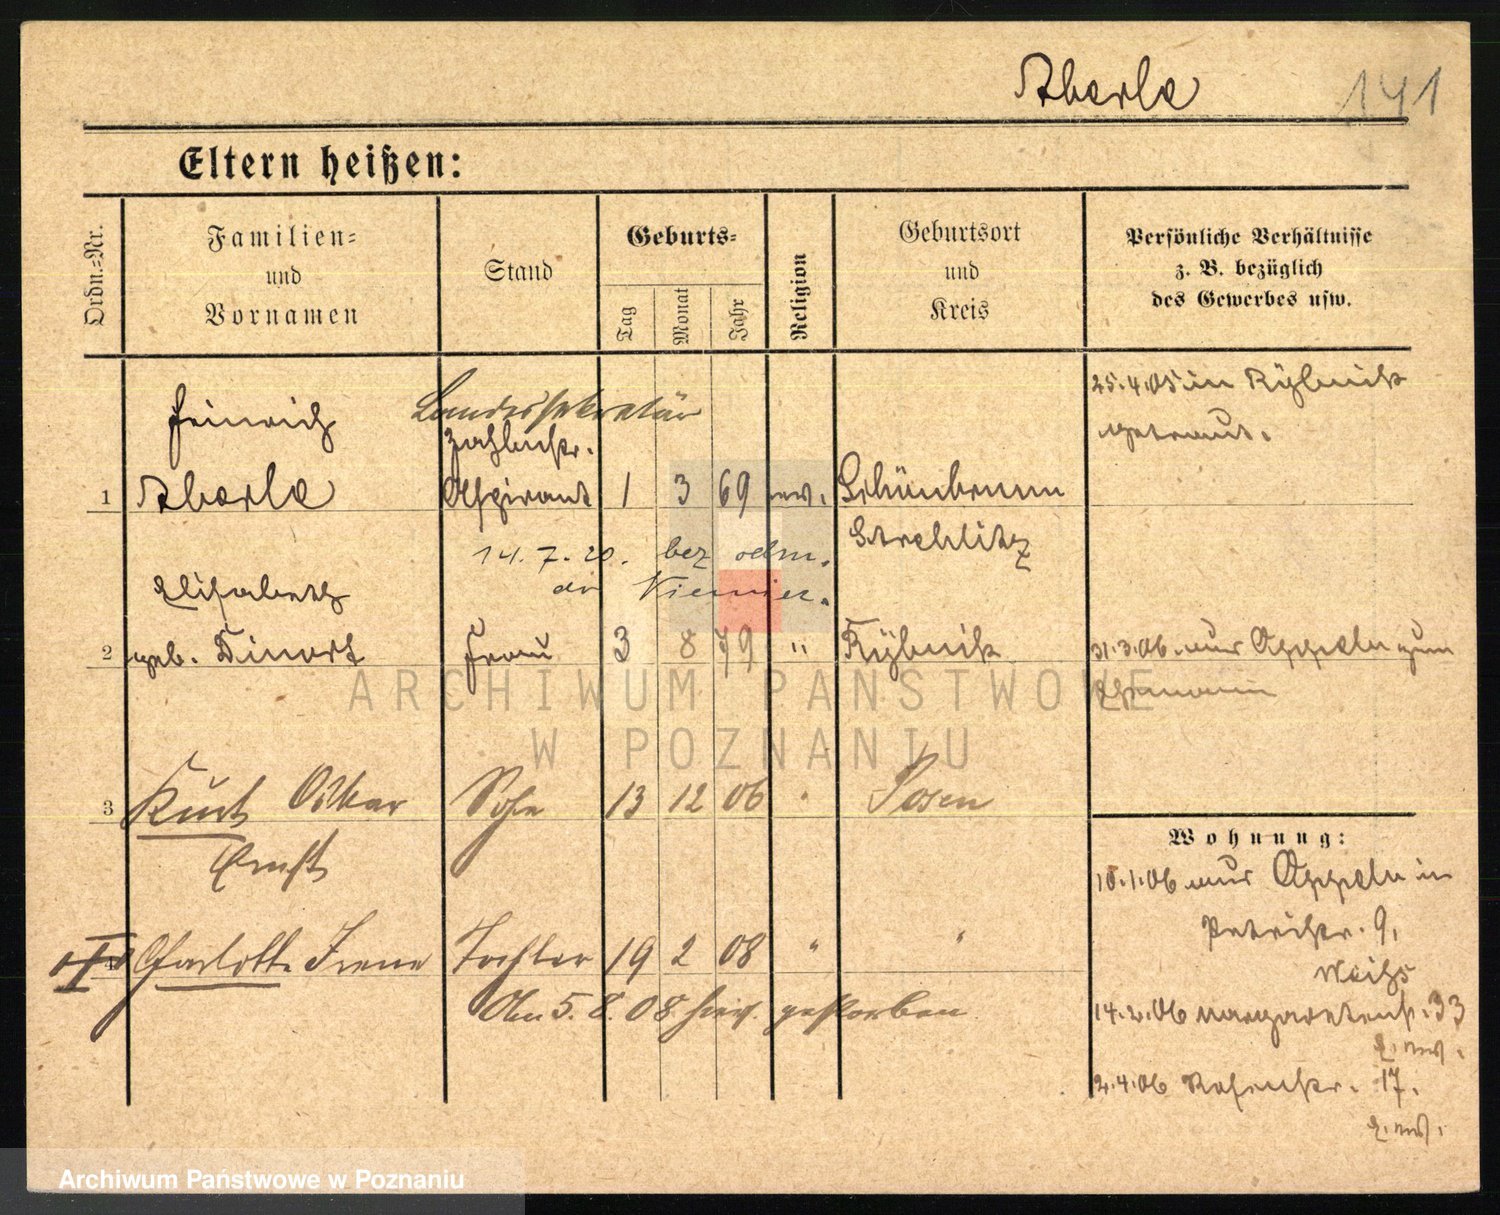 Aberle 141
Eltern heißen:
Ordn.-Nr.
Familien-
und
Vornamen
Stand
Geburts-
Tag
Monat
Jahr
Religion
Geburtsort
und
Kreis
Persönliche Verhältnisse
z. B. bezüglich
des Gewerbes usw.
Landessekretär
25.4.05 in Rybnik
getraut.
Heinrich
Zahlmstr.
1 Aberle Aspirant 1 3 69 ev. Schönbrunn
Strehlitz
14.7.20. bez
Elisabeth
2 geb. Frau 3 8 79 " Rybnik 31.3.06 aus Oppeln zum
Ehemann
3 Kurt Oskar Sohn 13 12 06 " Posen
Ernst
Wohnung:
10.1.06 aus Oppeln in
Petristr. 9,
4 Charlotte Irene Tochter 19 2 08 " "
Am 5.8.08 hier gestorben
14.2.06 Margaretenstr. 33
2.4.06 Rosenstr. 17.
ARCHIWUM PAŃSTWOWE
W POZNANIU
Archiwum Państwowe w Poznaniu